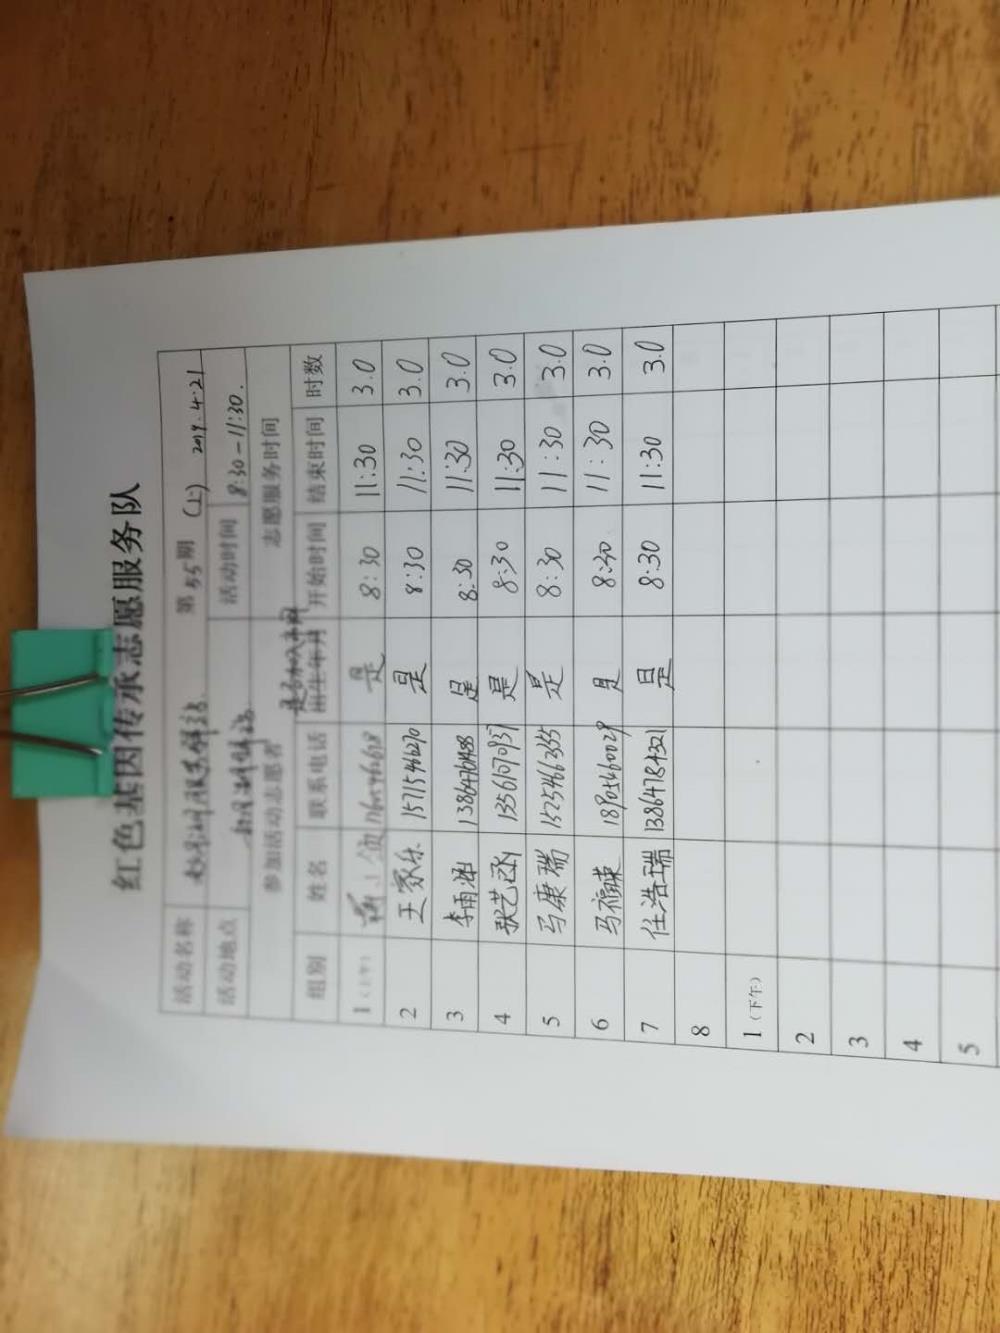 红色基因传承志愿服务队
活动名称 第55期 (上) 2019.4.21
活动地点 活动时间 8:30-11:30.
参加活动志愿者 志愿服务时间
组别 姓名 联系电话 出生年月 开始时间 结束时间 时数
1(上午) 是 8:30 11:30 3.0
2 王家乐 15715546270 是 8:30 11:30 3.0
3 李雨 是 8:30 11:30 3.0
4 张艺 是 8:30 11:30 3.0
5 马康瑞 1525466355 是 8:30 11:30 3.0
6 马福荣 18905460029 是 8:30 11:30 3.0
7 任浩瑞 13864784321 是 8:30 11:30 3.0
8
1(下午)
2
3
4
5